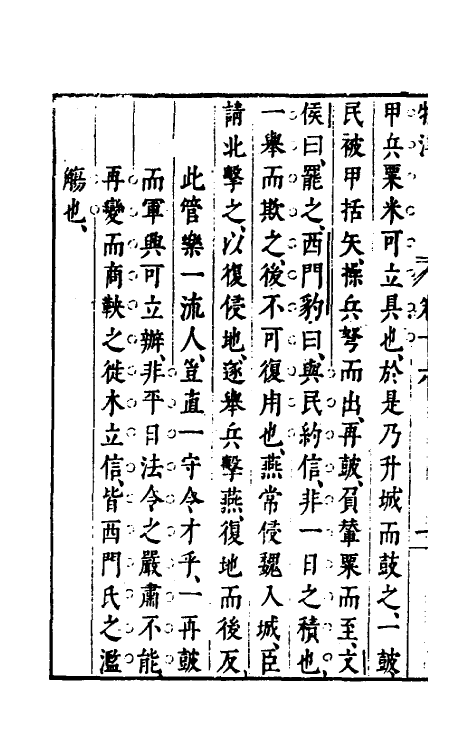 甲兵粟米可立具也、於是乃升城而鼓之、一鼓、
民被甲括矢、操兵弩而出、再鼓、負輦粟而至、文
侯曰、罷之、西門豹曰、與民約信、非一日之積也、
一舉而欺之、後不可復用也、燕常侵魏八城、臣
請北擊之、以復侵地、遂舉兵擊燕、復地而後反、
此管樂一流人、豈直一守令才乎、一再鼓
而軍興可立辦、非平日法令之嚴肅不能、
再變而商鞅之徙木立信、皆西門氏之濫
觴也、